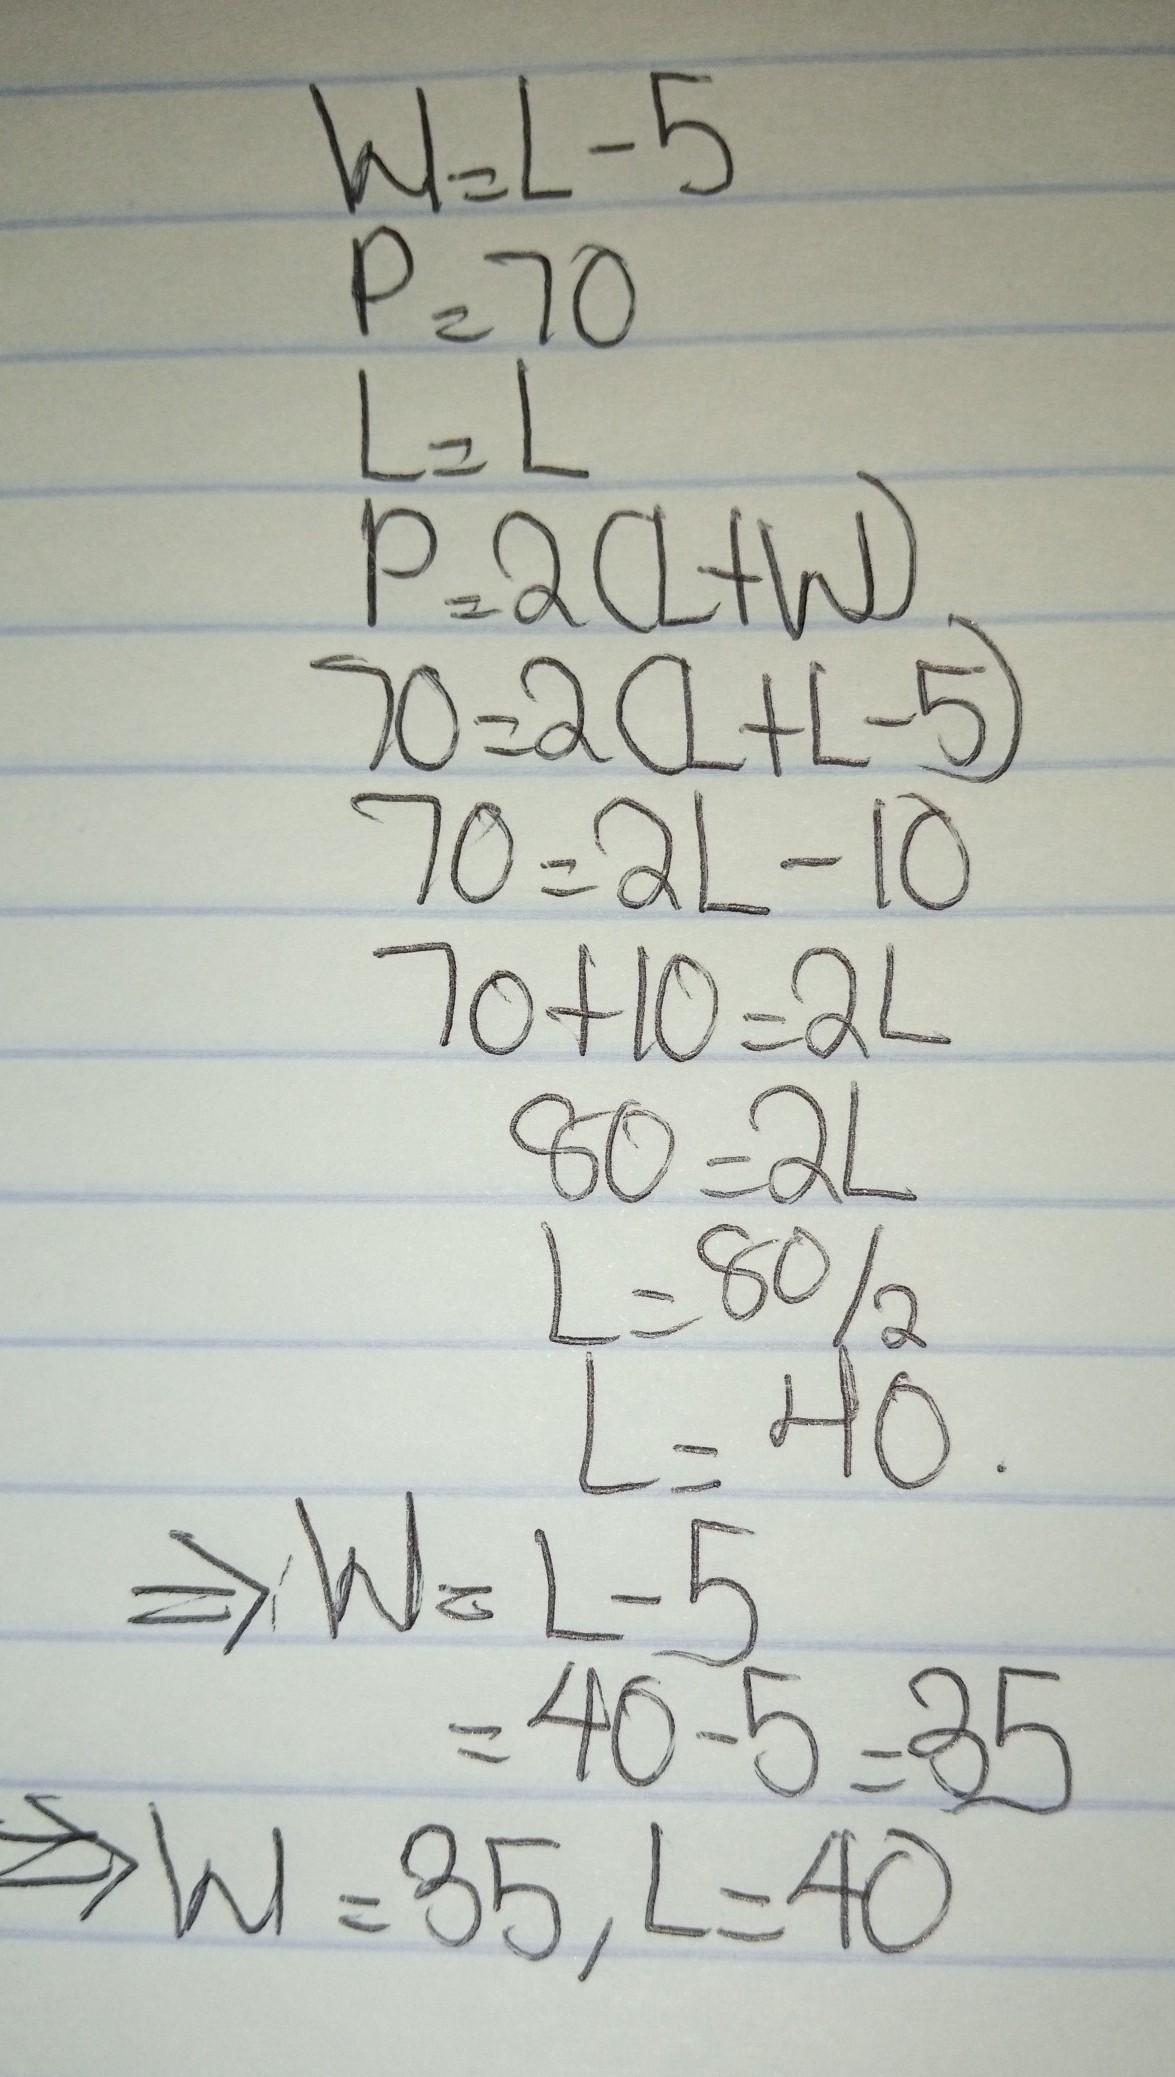 W=L-5
P=70
L=L
P=2(L+W)
70=2(L+L-5)
70=2L-10
70+10=2L
80=2L
L=80/2
L=40.
⇒W=L-5
=40-5=35
⇒W=35, L=40